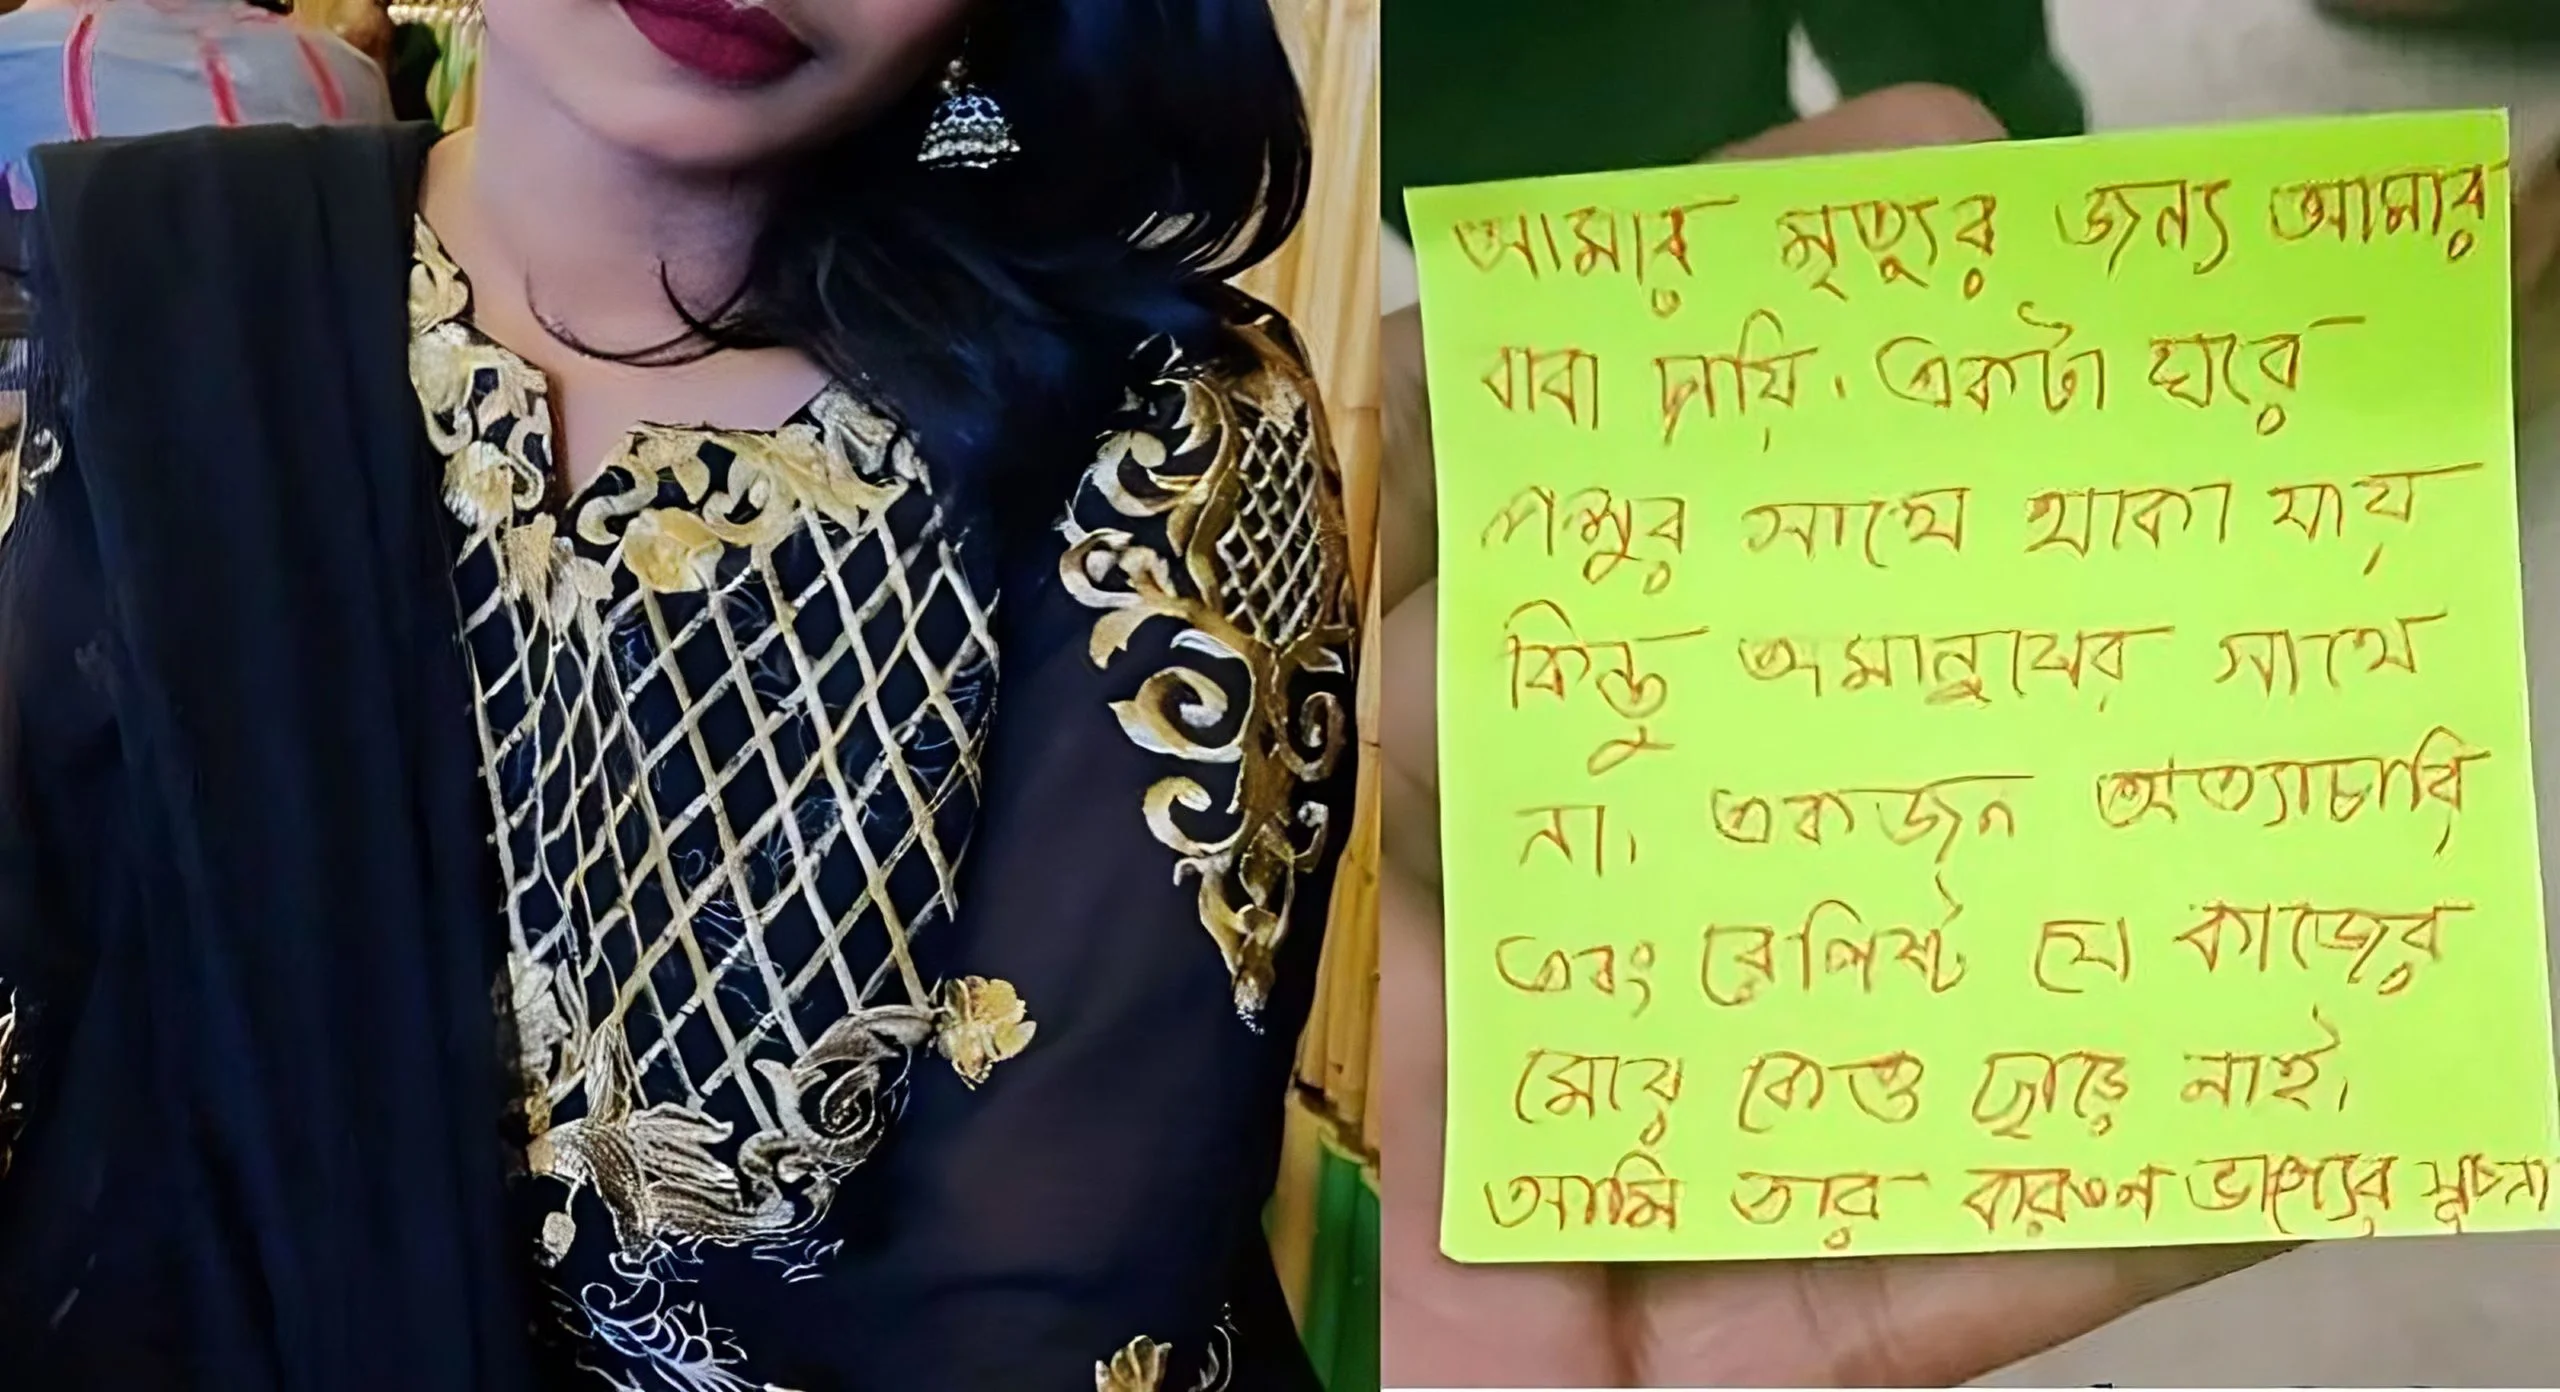 আমার মৃত্যুর জন্য আমার
বাবা দায়ি. একটা ঘরে
পশুর সাথে থাকা যায়
কিন্তু অমানুষের সাথে
না। একজন অত্যাচারি
এবং রেপিষ্ট যে কাজের
মেয়ে কেও ছাড়ে নাই।
আমি তার করুন ভাগ্যের সূচনা